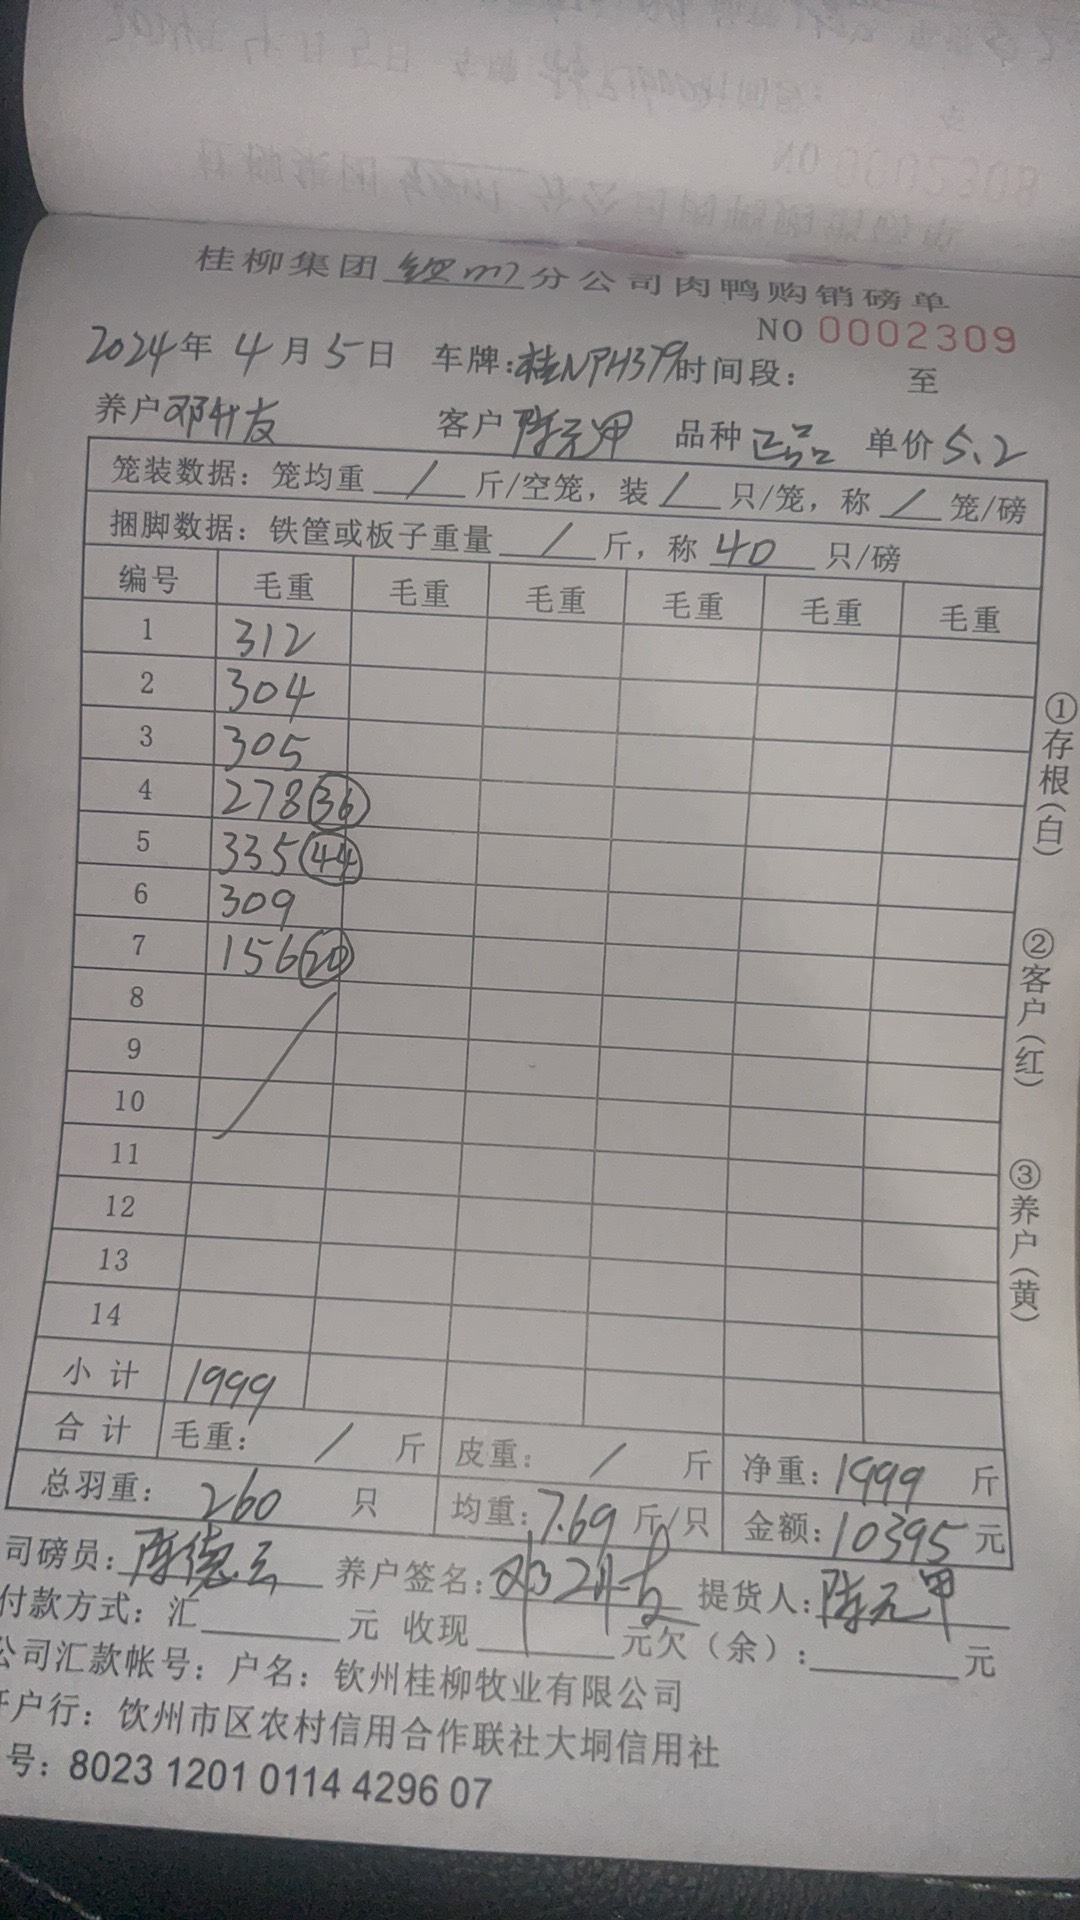 桂柳集团分公司肉鸭购销磅单
NO 0002309
2024年 4月 5日 车牌:桂NPH379 时间段: 至
养户 邓升友 客户 陈元甲 品种 正品 单价 5.2
笼装数据: 笼均重 / 斤/空笼, 装 / 只/笼, 称 / 笼/磅
捆脚数据: 铁筐或板子重量 / 斤, 称 40 只/磅
编号 毛重 毛重 毛重 毛重 毛重 毛重
1 312
2 304
3 305
4 278 36
5 335 44
6 309
7 156 20
8
9
10
11
12
13
14
小计 1999
合计 毛重: / 斤 皮重: / 斤 净重: 1999 斤
总羽重: 260 只 均重: 7.69 斤/只 金额: 10395 元
司磅员: 陈德云 养户签名: 邓升友 提货人: 陈元甲
付款方式: 汇 元 收现 元欠(余): 元
公司汇款帐号: 户名: 钦州桂柳牧业有限公司
开户行: 饮州市区农村信用合作联社大垌信用社
号: 8023 1201 0114 4296 07
①存根(白)
②客户(红)
③养户(黄)